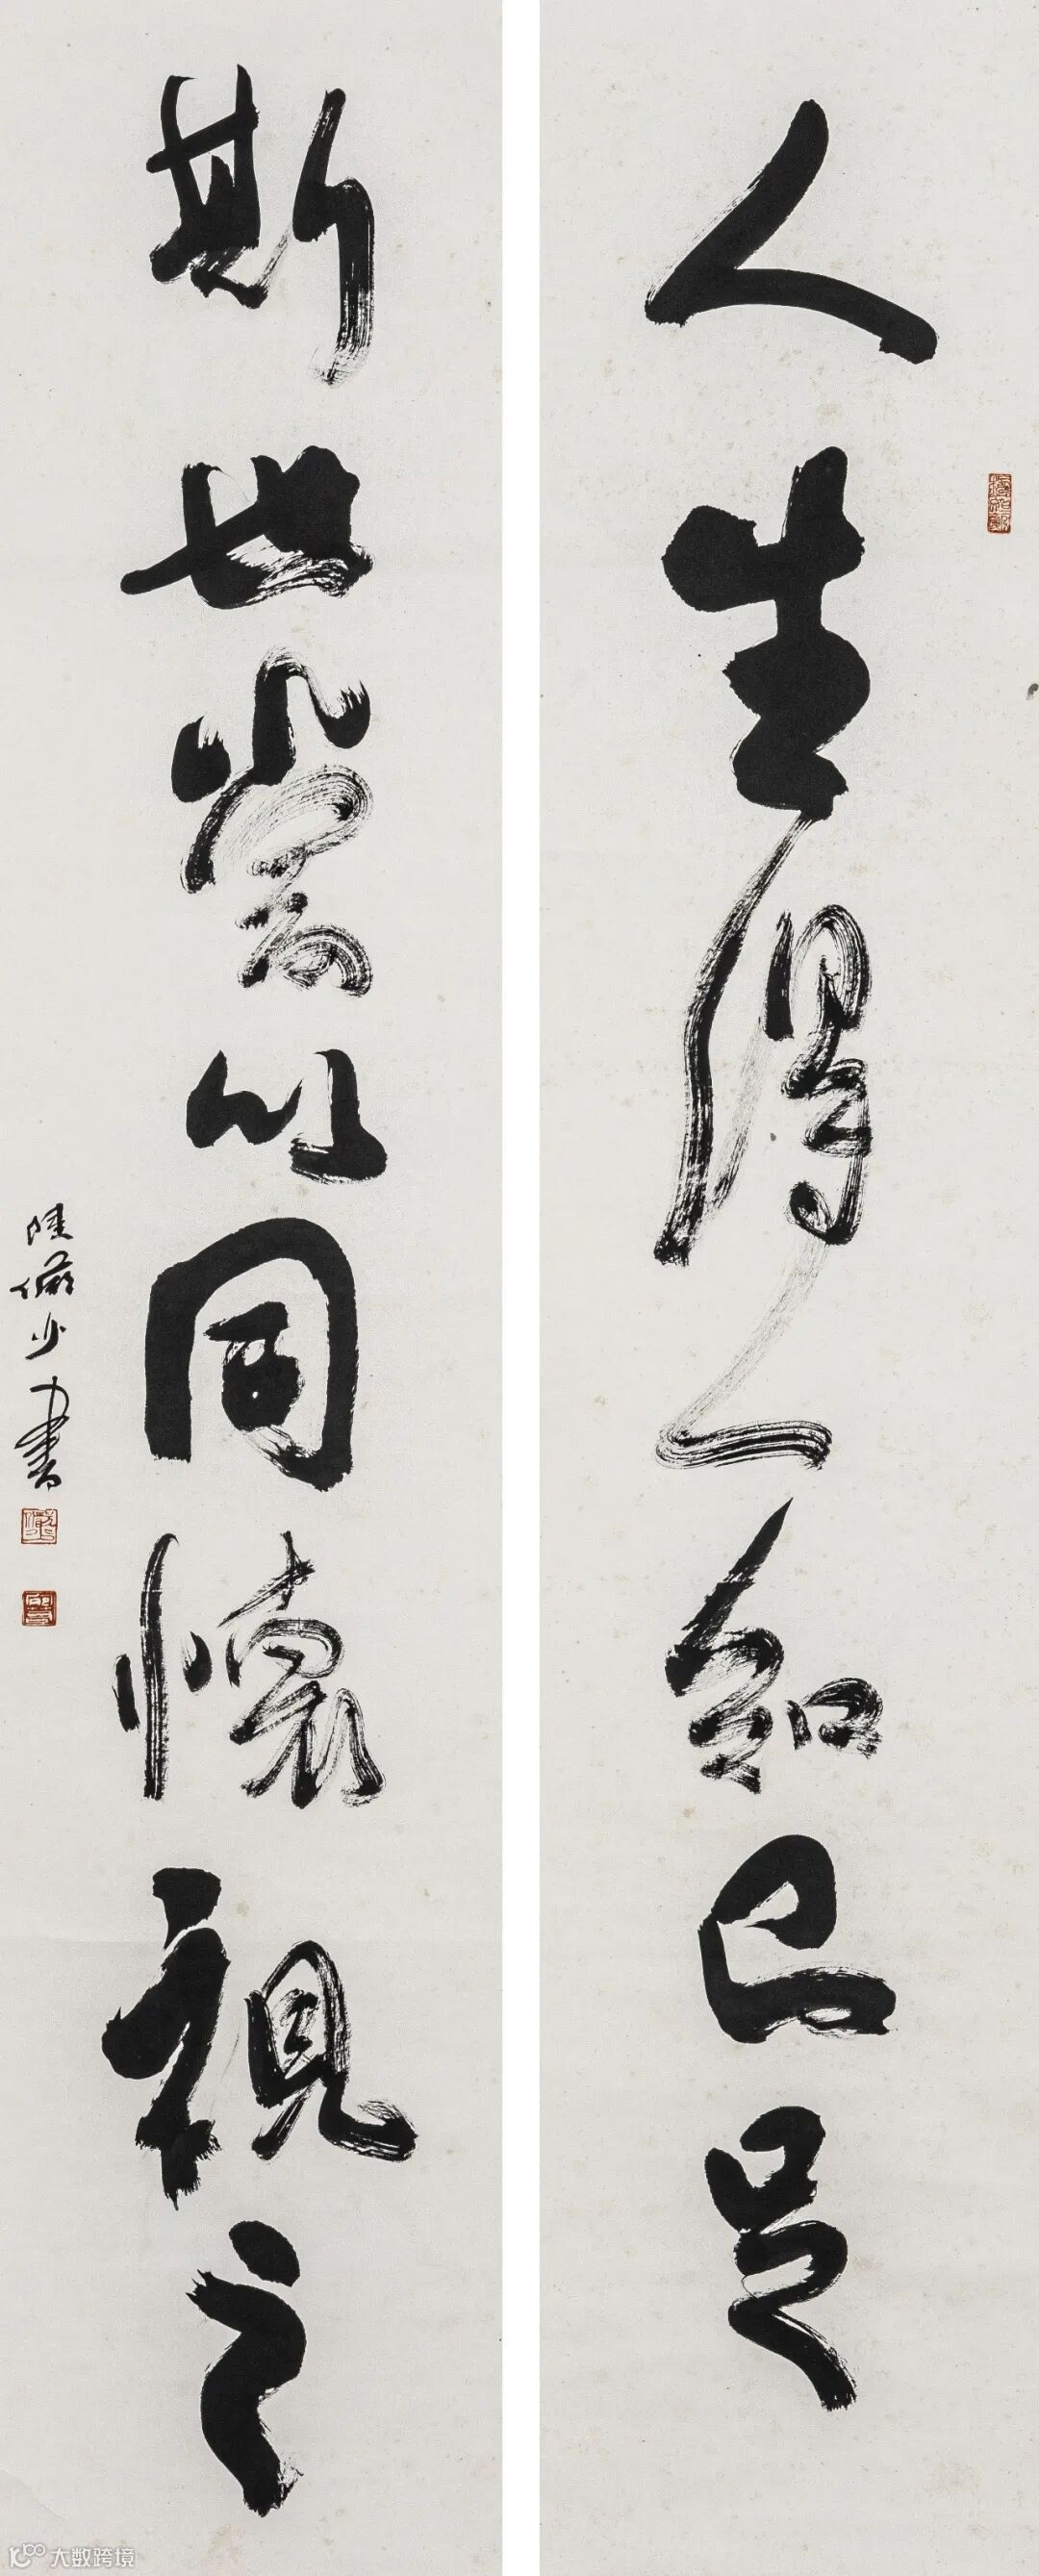 人生得一知己足
斯世當以同懷視之
陸儼少書
大数跨境